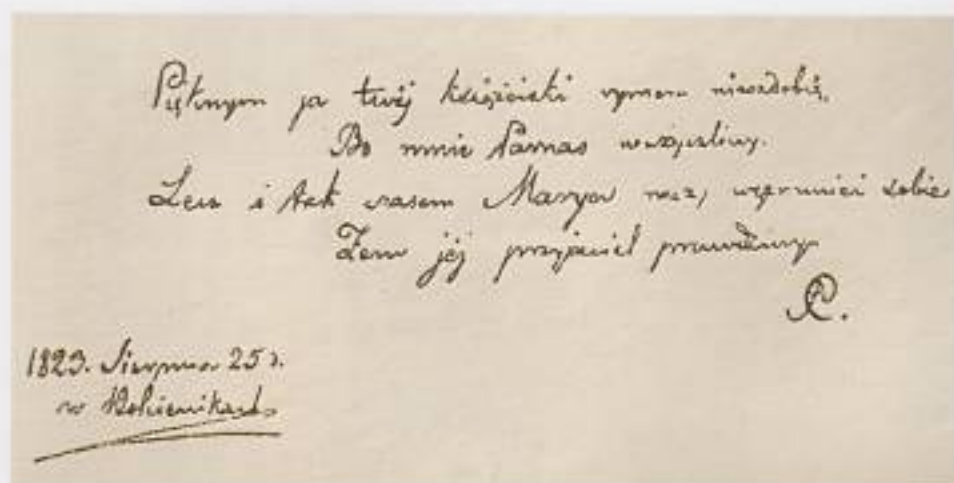 Pięknym ja twéj książeczki rymem nieozdobię,
Bo mnie Parnas nieżyczliwy.
Lecz i tak czasem Marya racz, wspomnieć sobie
Żem jéj przyjaciel prawdziwy
1823. Sierpnia 25 d.
w Bolcienikach